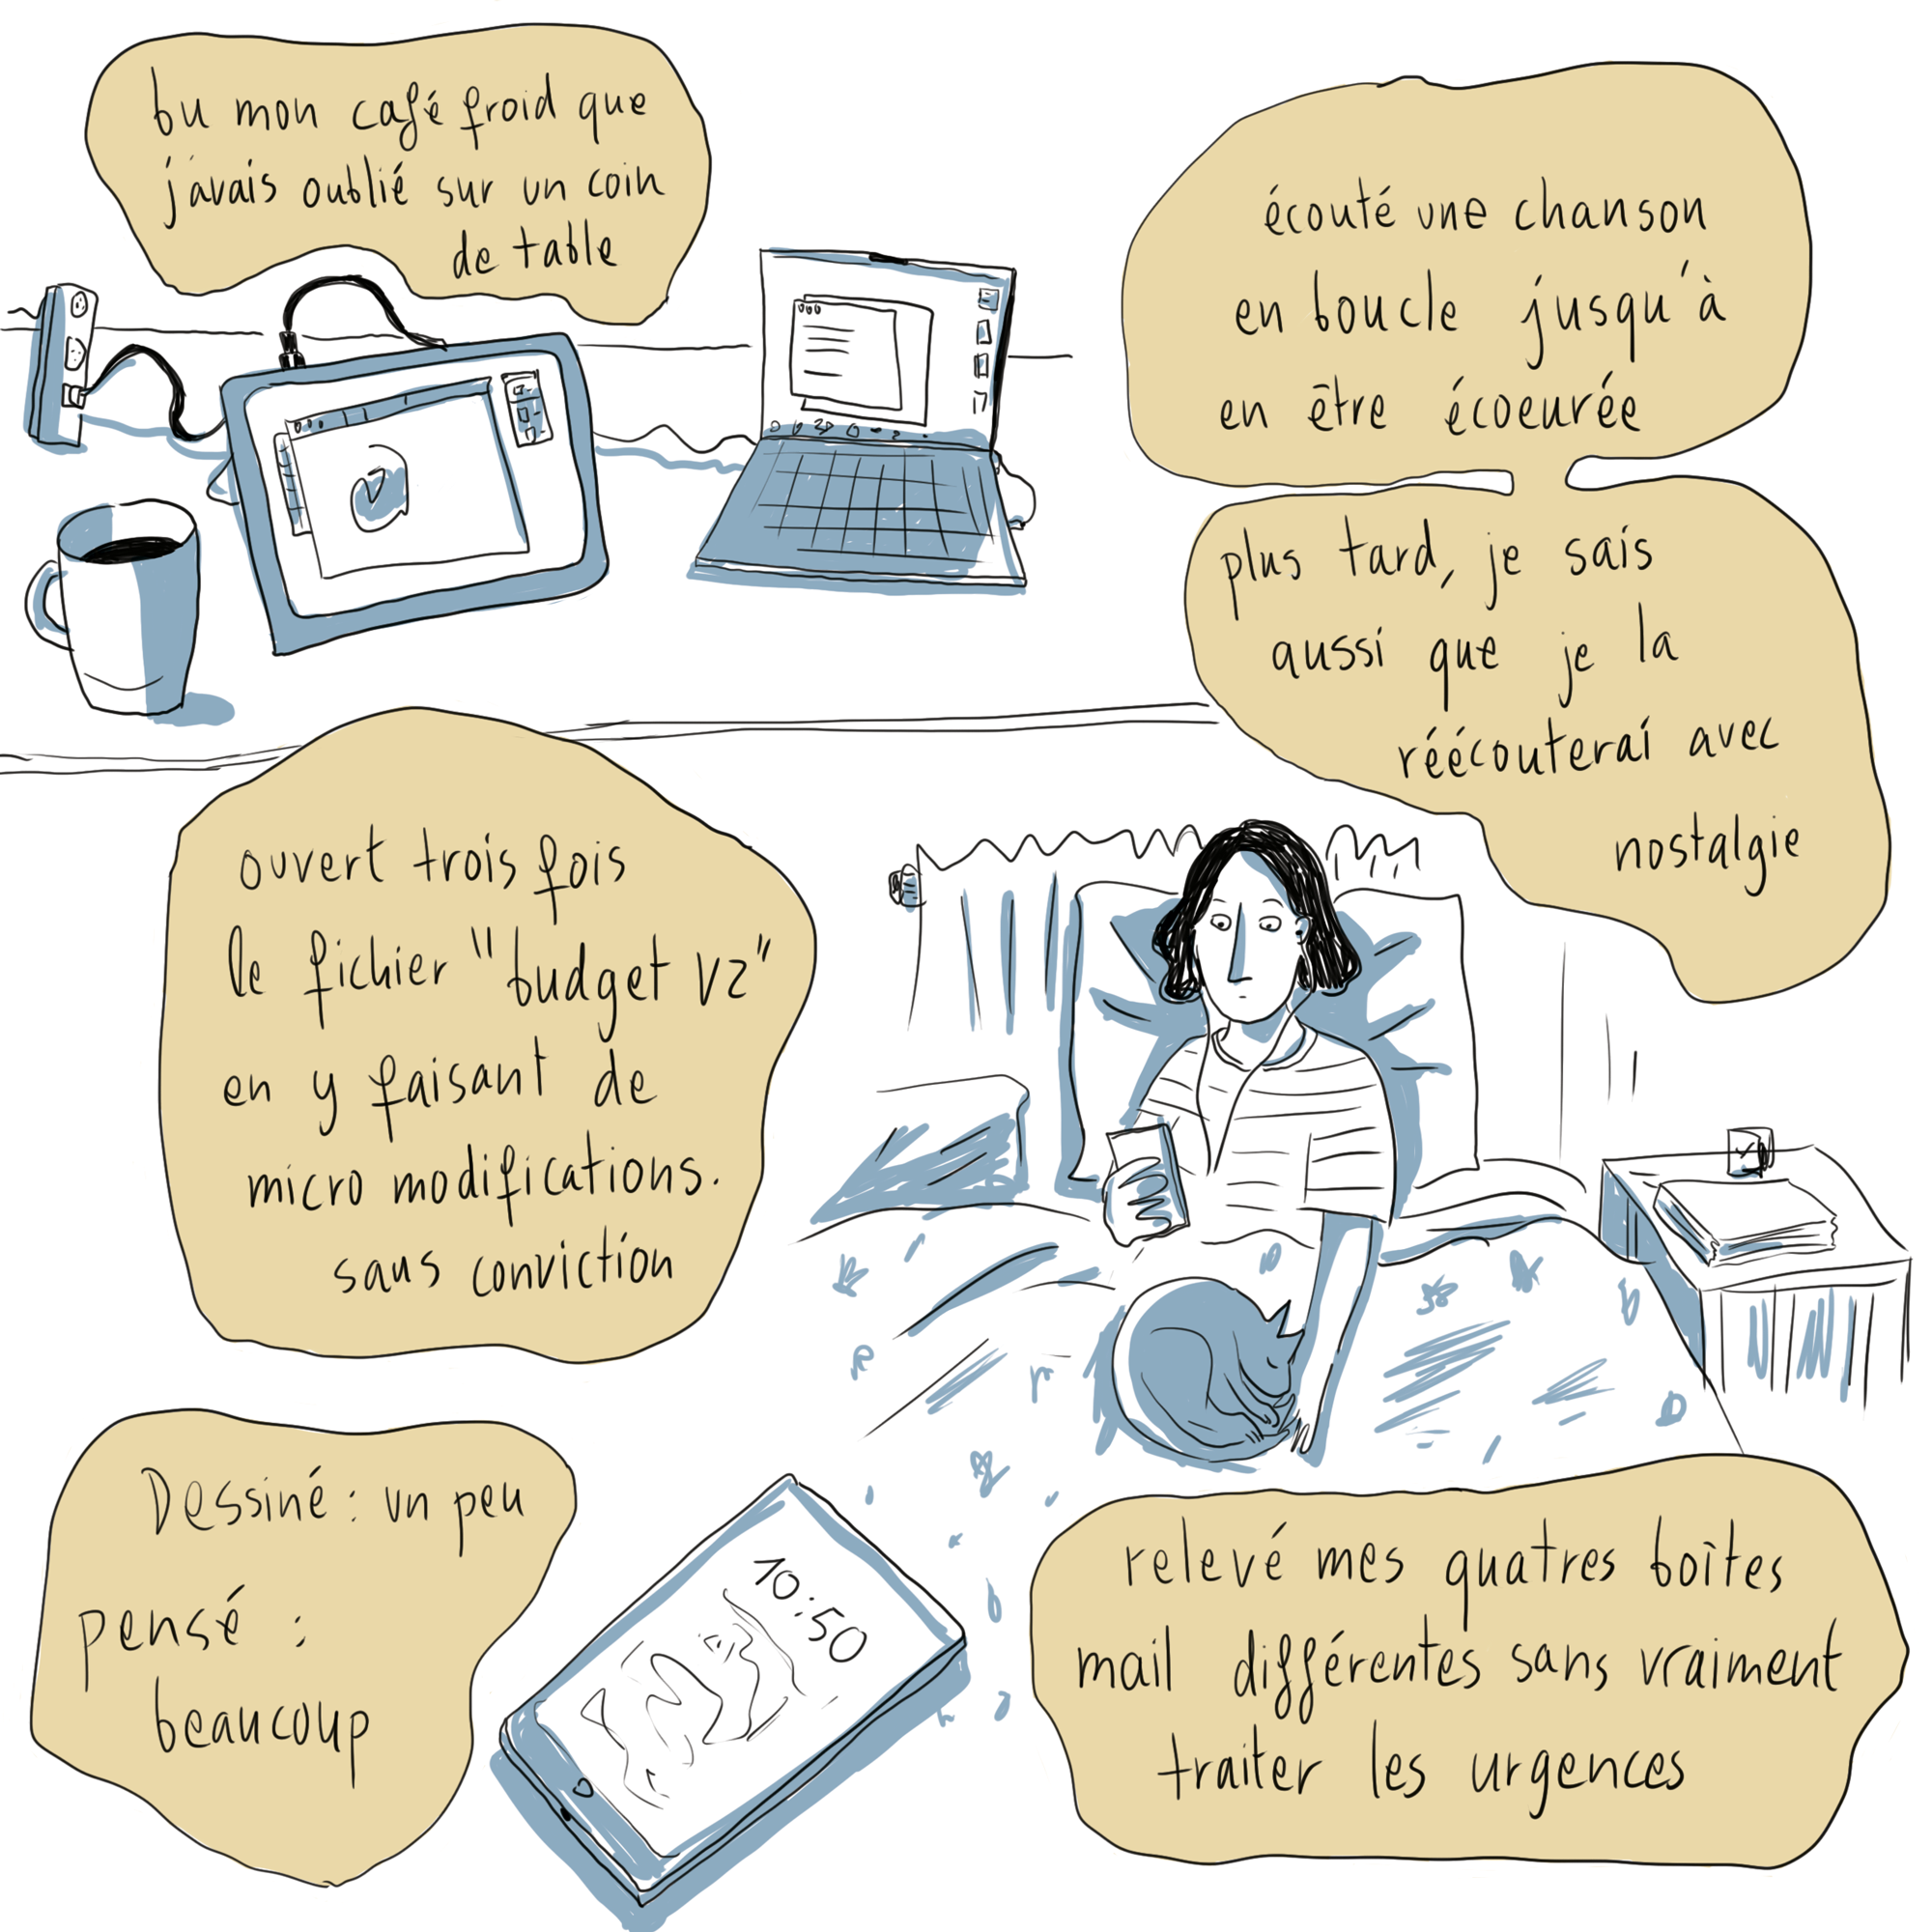 bu mon café froid que
j'avais oublié sur un coin
de table
écouté une chanson
en boucle jusqu'à
en être écoeurée
plus tard, je sais
aussi que je la
réécouterai avec
nostalgie
ouvert trois fois
le fichier "budget V2"
en y faisant de
micro modifications.
sans conviction
Dessiné : un peu
pensé :
beaucoup
10:50
relevé mes quatres boîtes
mail différentes sans vraiment
traiter les urgences